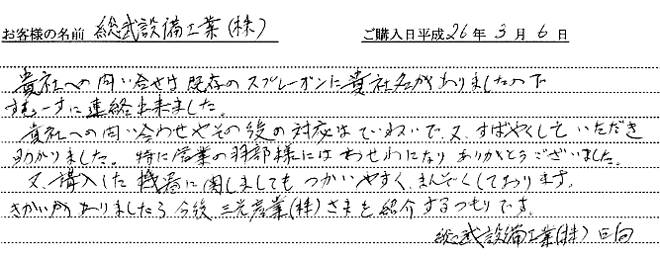 お客様の名前 総武設備工業(株) ご購入日平成26年3月6日
貴社への問い合せは既存のスプレーガンに貴社名がありましたので
すむーずに連絡出来ました。
貴社への問い合わせやその後の対応はていねいで、又、すばやくしていただき
助かりました。特に営業の羽部様にはおせわになりありがとうございました。
又、購入した機器に関しましてもつかいやすく、まんぞくしております。
きかいがありましたら今後三光産業(株)さまを紹介するつもりです。
総武設備工業(株) 日向